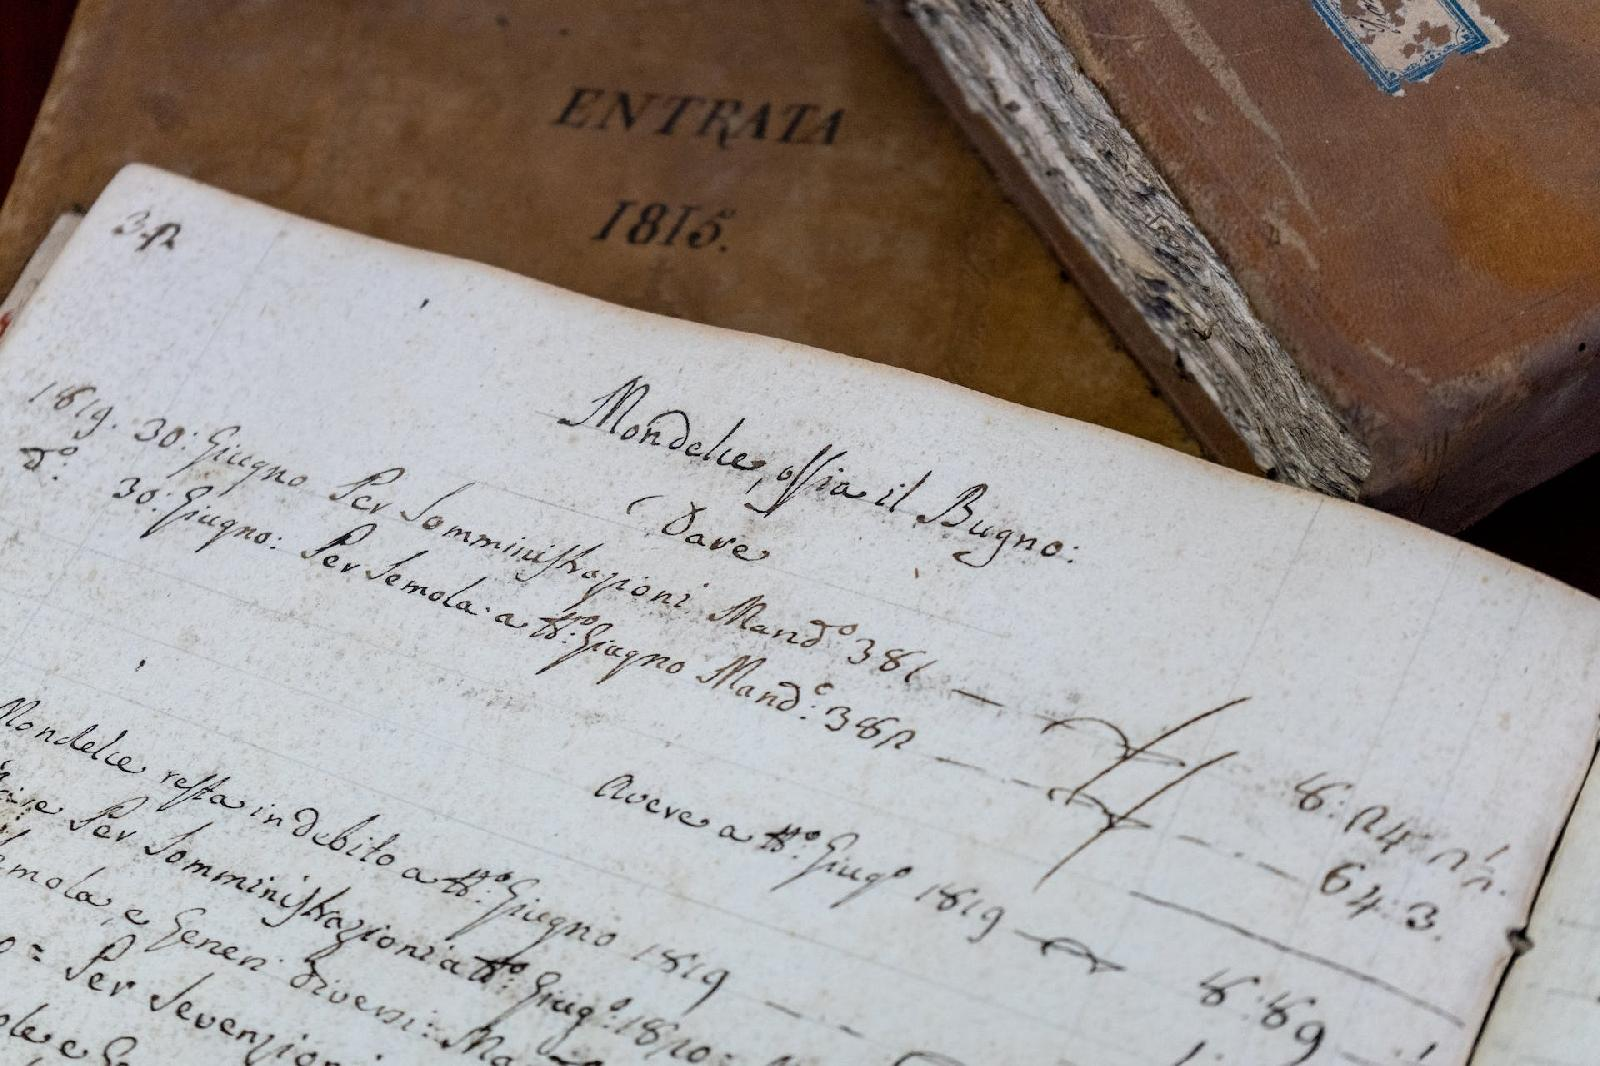 ENTRATA
1815.
32
Mondelce, ossia il Bugno:
Dare
1819. 30: Giugno Per Somministrazioni Mand:o 381 24
d:o 30: Giugno: Per Semola a tt:o Giugno Mand:e 382 64 3.
Avere a tt:o Giug:o 1819 89
Mondelce resta in debito a tt:o Giugno 1819
Per Somministrazioni a tt:o Giug:o 1820
e Generi diversi:
= Per Sevenzioni